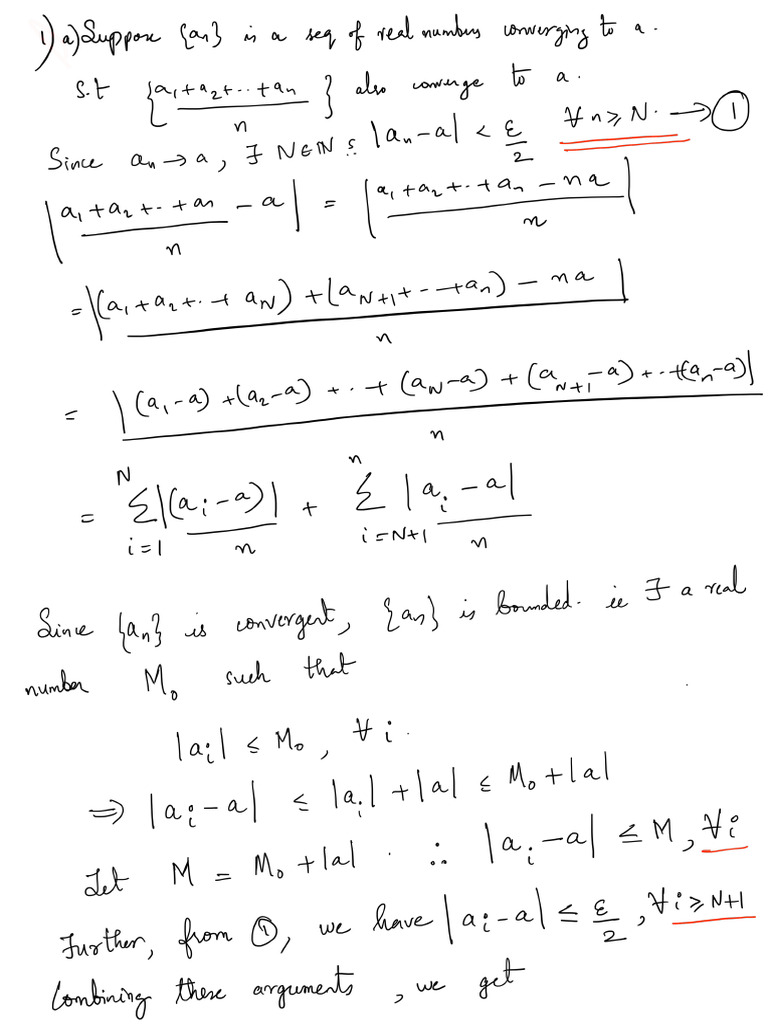 1) a) Suppose {aₙ} is a seq of real numbers converging to a.
S.t {(a₁+a₂+..+aₙ)/n} also converge to a.
Since aₙ → a, ∃ N∈ℕ s: |aₙ-a| < ε/2 ∀ n ≥ N. → ①
|(a₁+a₂+..+aₙ)/n - a| = |(a₁+a₂+..+aₙ - na)/n|
= |(a₁+a₂+..+a_N)+(a_{N+1}+--+aₙ) - na|/n
= |(a₁-a)+(a₂-a)+..+(a_N-a)+(a_{N+1}-a)+..+(aₙ-a)|/n
= ∑_{i=1}^{N} |(aᵢ-a)|/n + ∑_{i=N+1}^{n} |aᵢ-a|/n
Since {aₙ} is convergent, {aₙ} is bounded. ie ∃ a real
number M₀ such that
|aᵢ| ≤ M₀, ∀ i.
⇒ |aᵢ-a| ≤ |aᵢ|+|a| ≤ M₀+|a|
Let M = M₀+|a|. ∴ |aᵢ-a| ≤ M, ∀i
Further, from ①, we have |aᵢ-a| ≤ ε/2, ∀ i ≥ N+1
Combining these arguments, we get